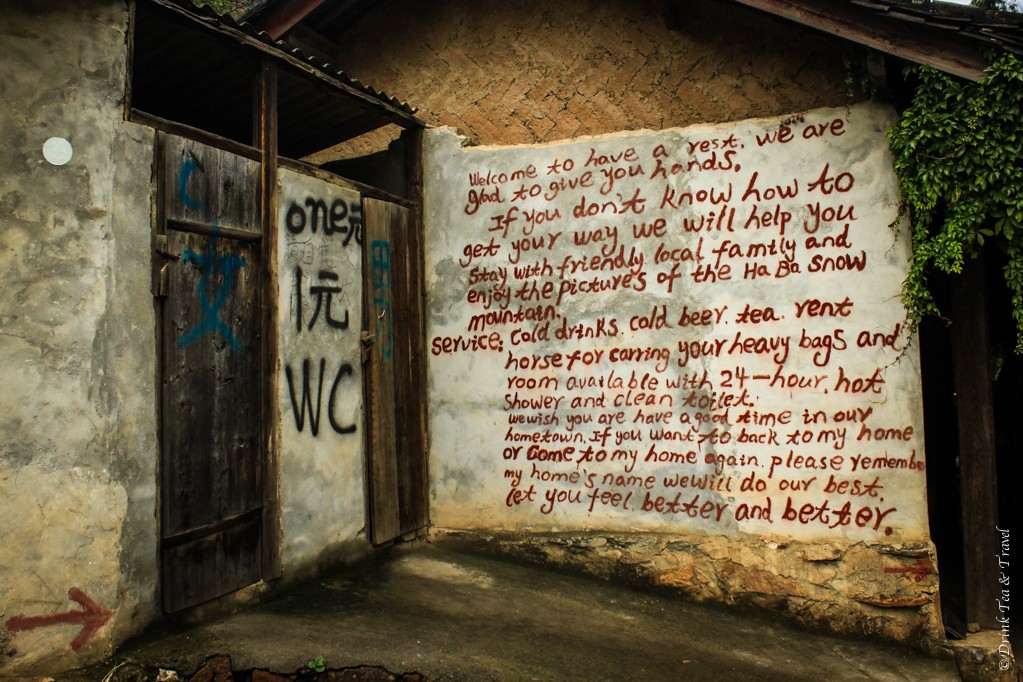 one元
1元
WC
女
Welcome to have a rest. we are
glad to give you hands.
If you don't know how to
get your way we will help you
Stay with friendly local family and
enjoy the pictures of the Ha Ba snow
mountain.
Service: Cold drinks. cold beer. tea. rent
horse for carring your heavy bags and
room available with 24-hour. hot
shower and clean toilet.
we wish you are have a good time in our
hometown. If you want to back to my home
or come to my home again. please remember
my home's name we will do our best.
let you feel better and better.
© Drink Tea & Travel